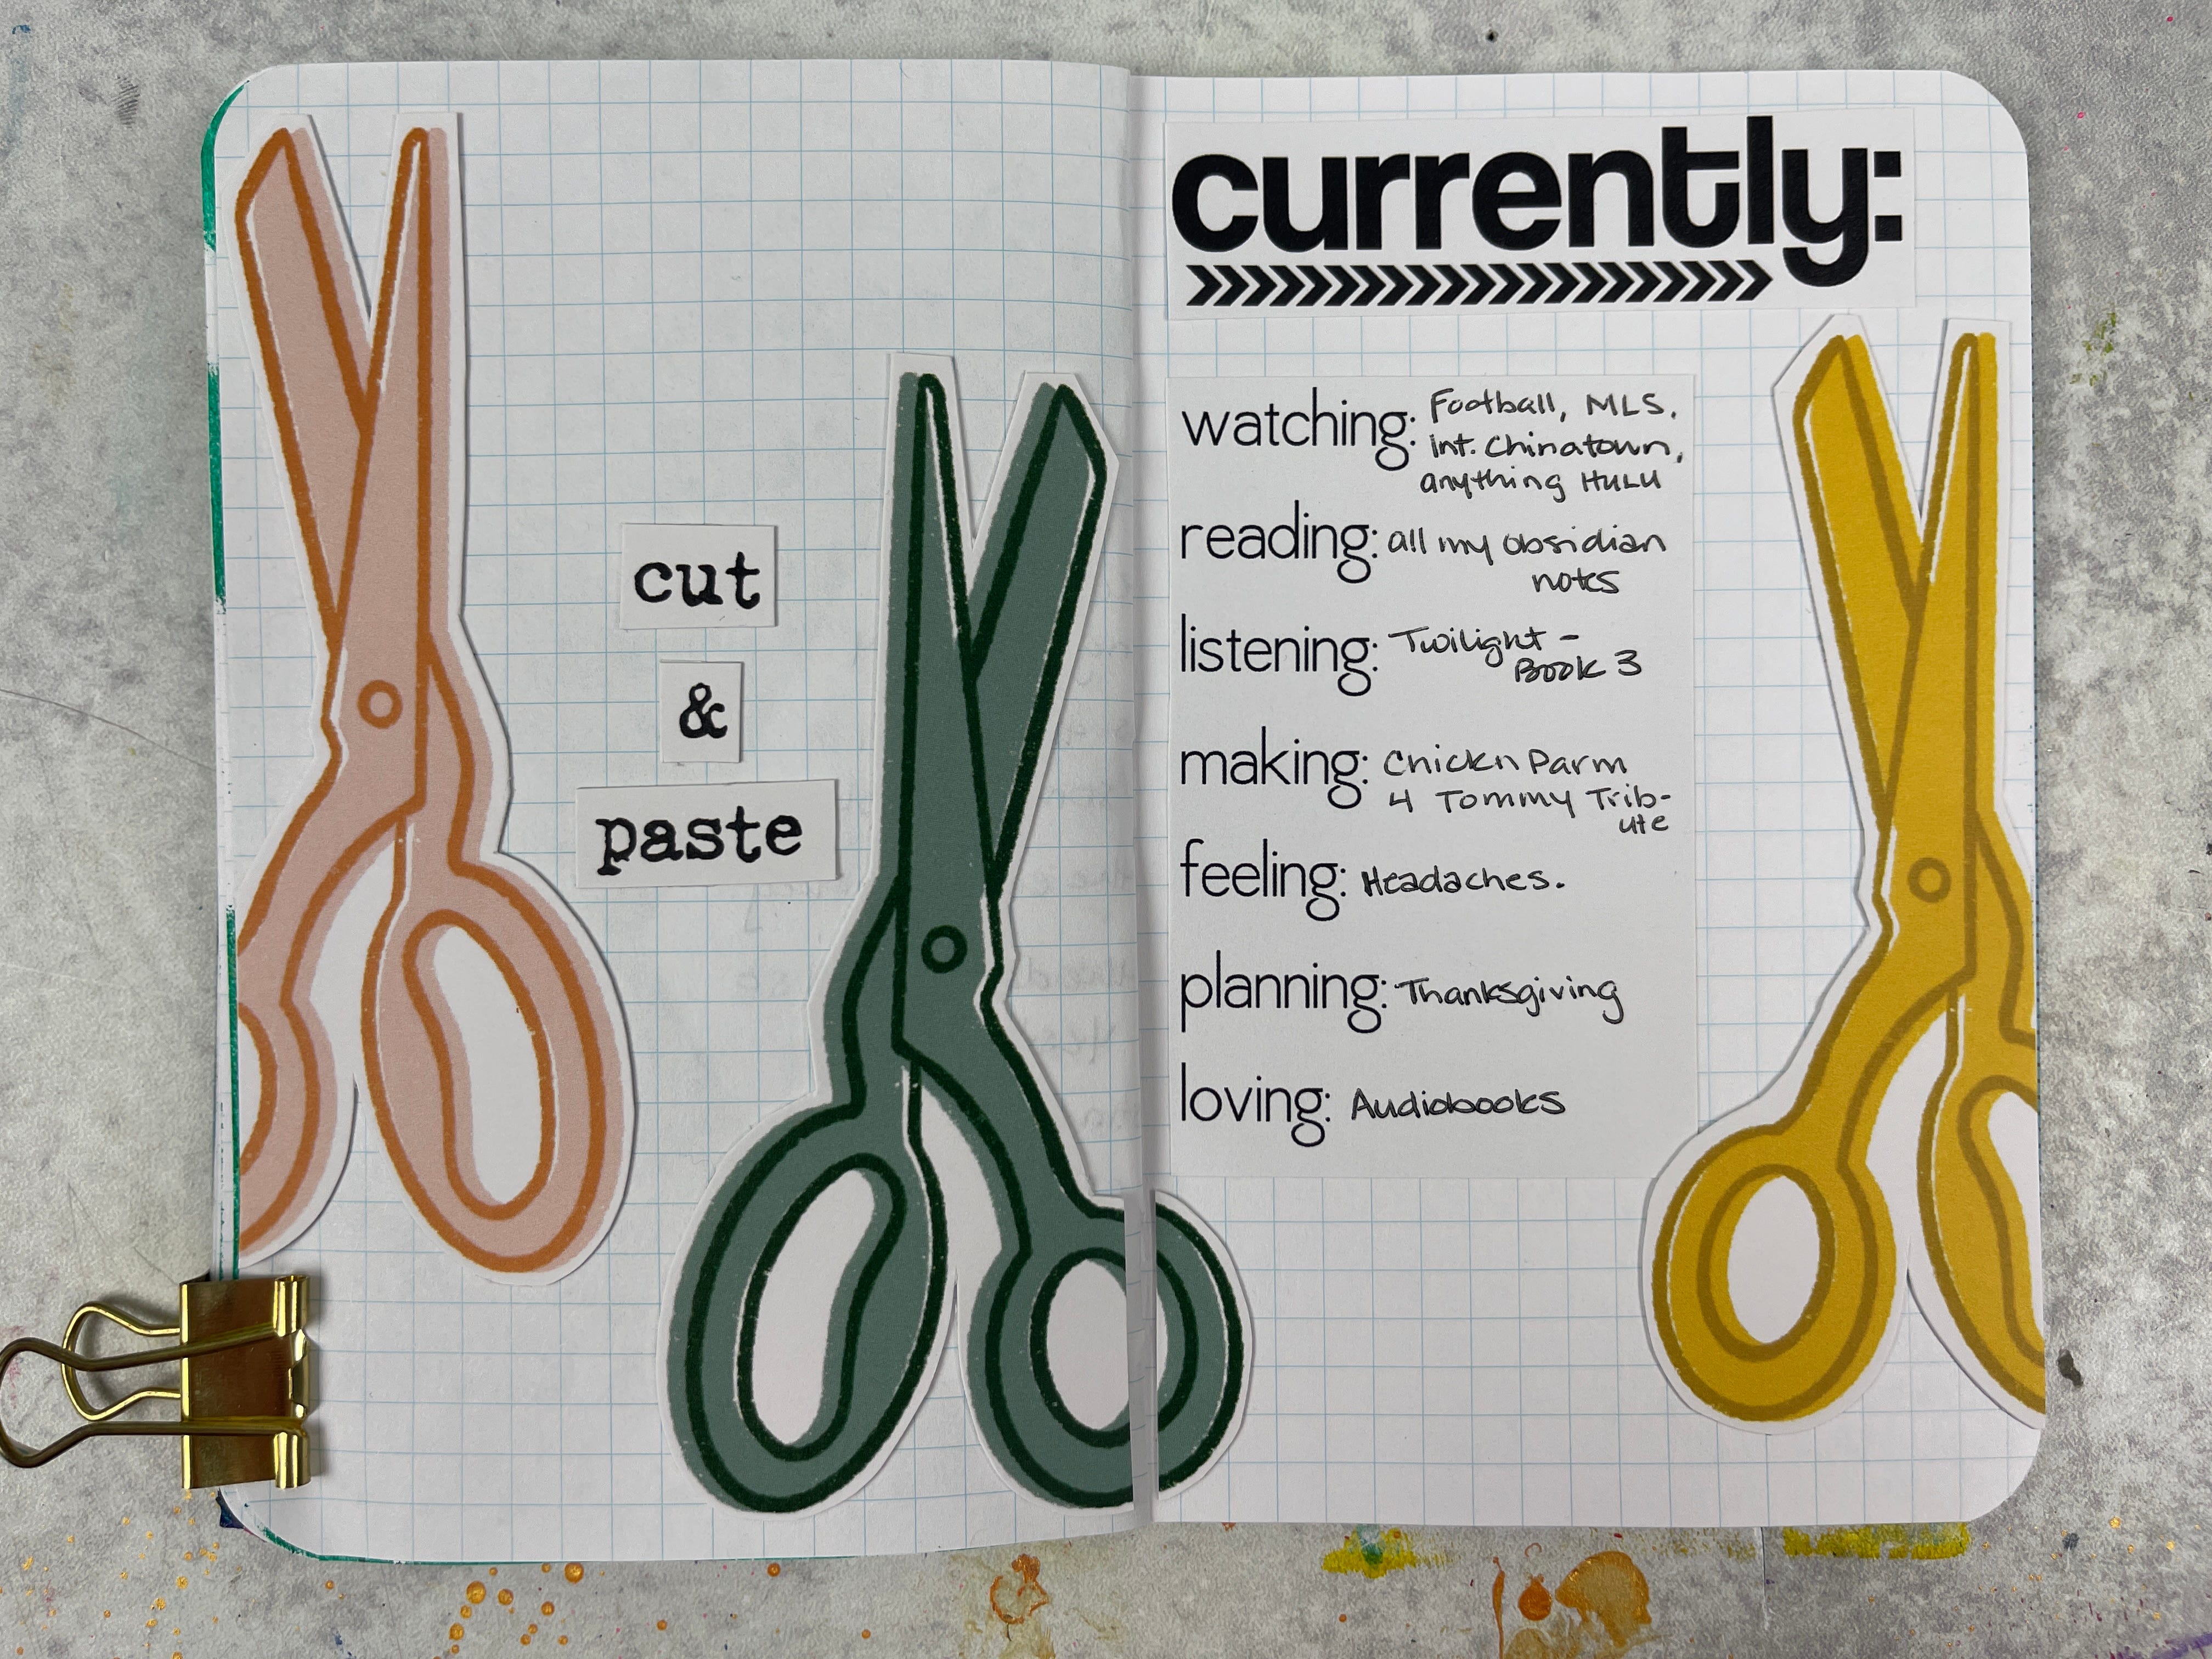 cut
&
paste
currently:
watching: Football, MLS,
Int. Chinatown,
anything HULU
reading: all my obsidian
notes
listening: Twilight -
Book 3
making: Chickn Parm
4 Tommy Trib-
ute
feeling: Headaches.
planning: Thanksgiving
loving: Audiobooks